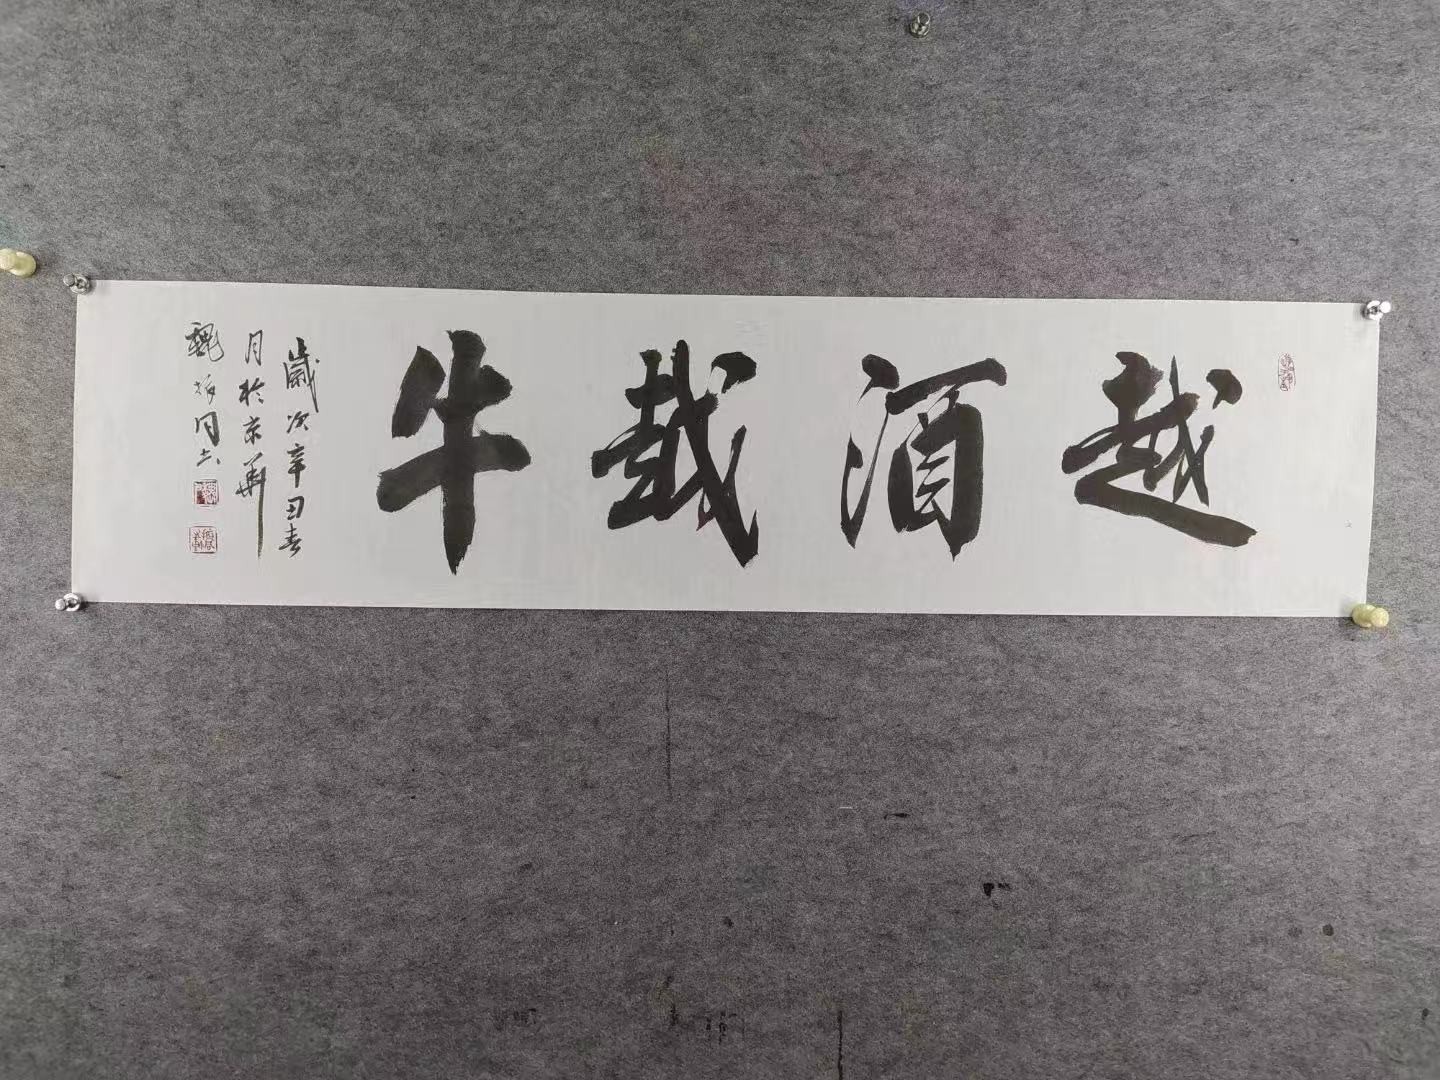 越酒越牛
歲次辛丑春
月於京華
魏振同